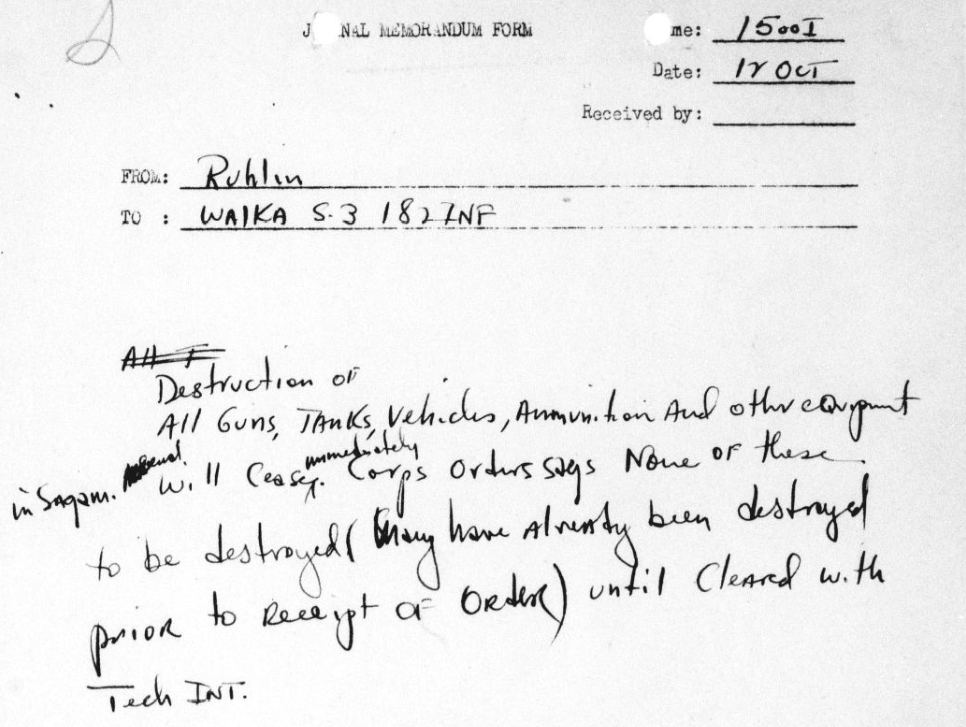 J NAL MEMORANDUM FORM
me: 1500I
Date: 12 OCT
Received by:
FROM: Ruhlin
TO : WAIKA S-3 182 INF
Destruction of
All Guns, Tanks, Vehicles, Ammunition And othr equipment
in Sagami. will Cease immediately. Corps Orders says None of these
to be destroyed (Many have already been destroyed
prior to Receipt of Order) until Cleared with
Tech INT.